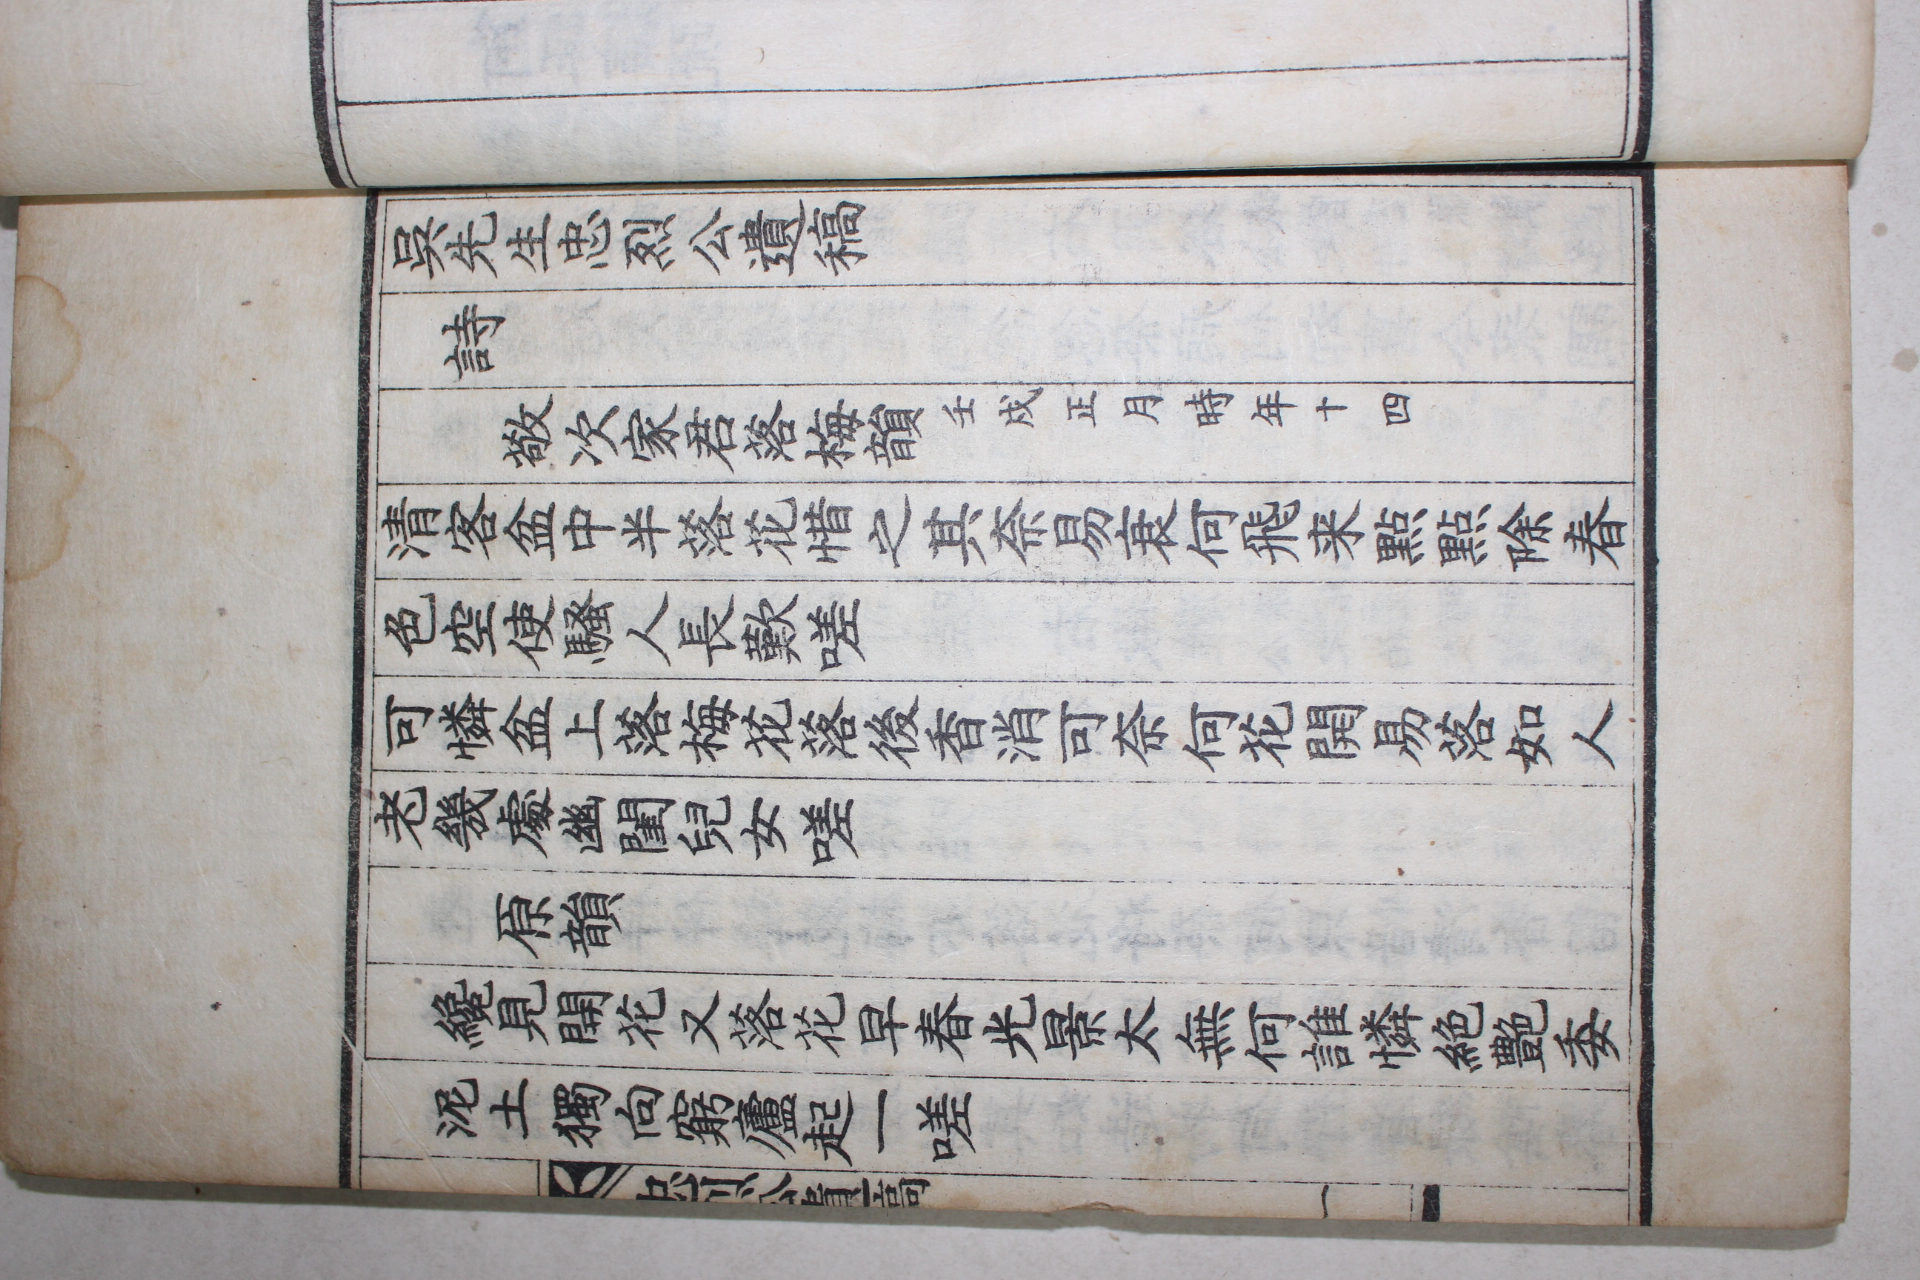 吳先生忠烈公遺稿
詩
敬次家君落梅韻 壬戌正月時年十四
清客盆中半落花惜之其奈易衰何飛来點點除春
色空使騷人長歎嗟
可憐盆上落梅花落後香消可奈何花開易落如人
老幾處幽閨兒女嗟
原韻
纔見開花又落花早春光景太無何誰憐絶艶委
泥土獨向窮廬起一嗟
忠烈公遺稿
一